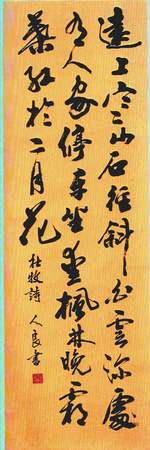 遠上寒山石徑斜白雲深處
有人家停車坐愛楓林晚霜
葉紅於二月花
杜牧詩 人良書